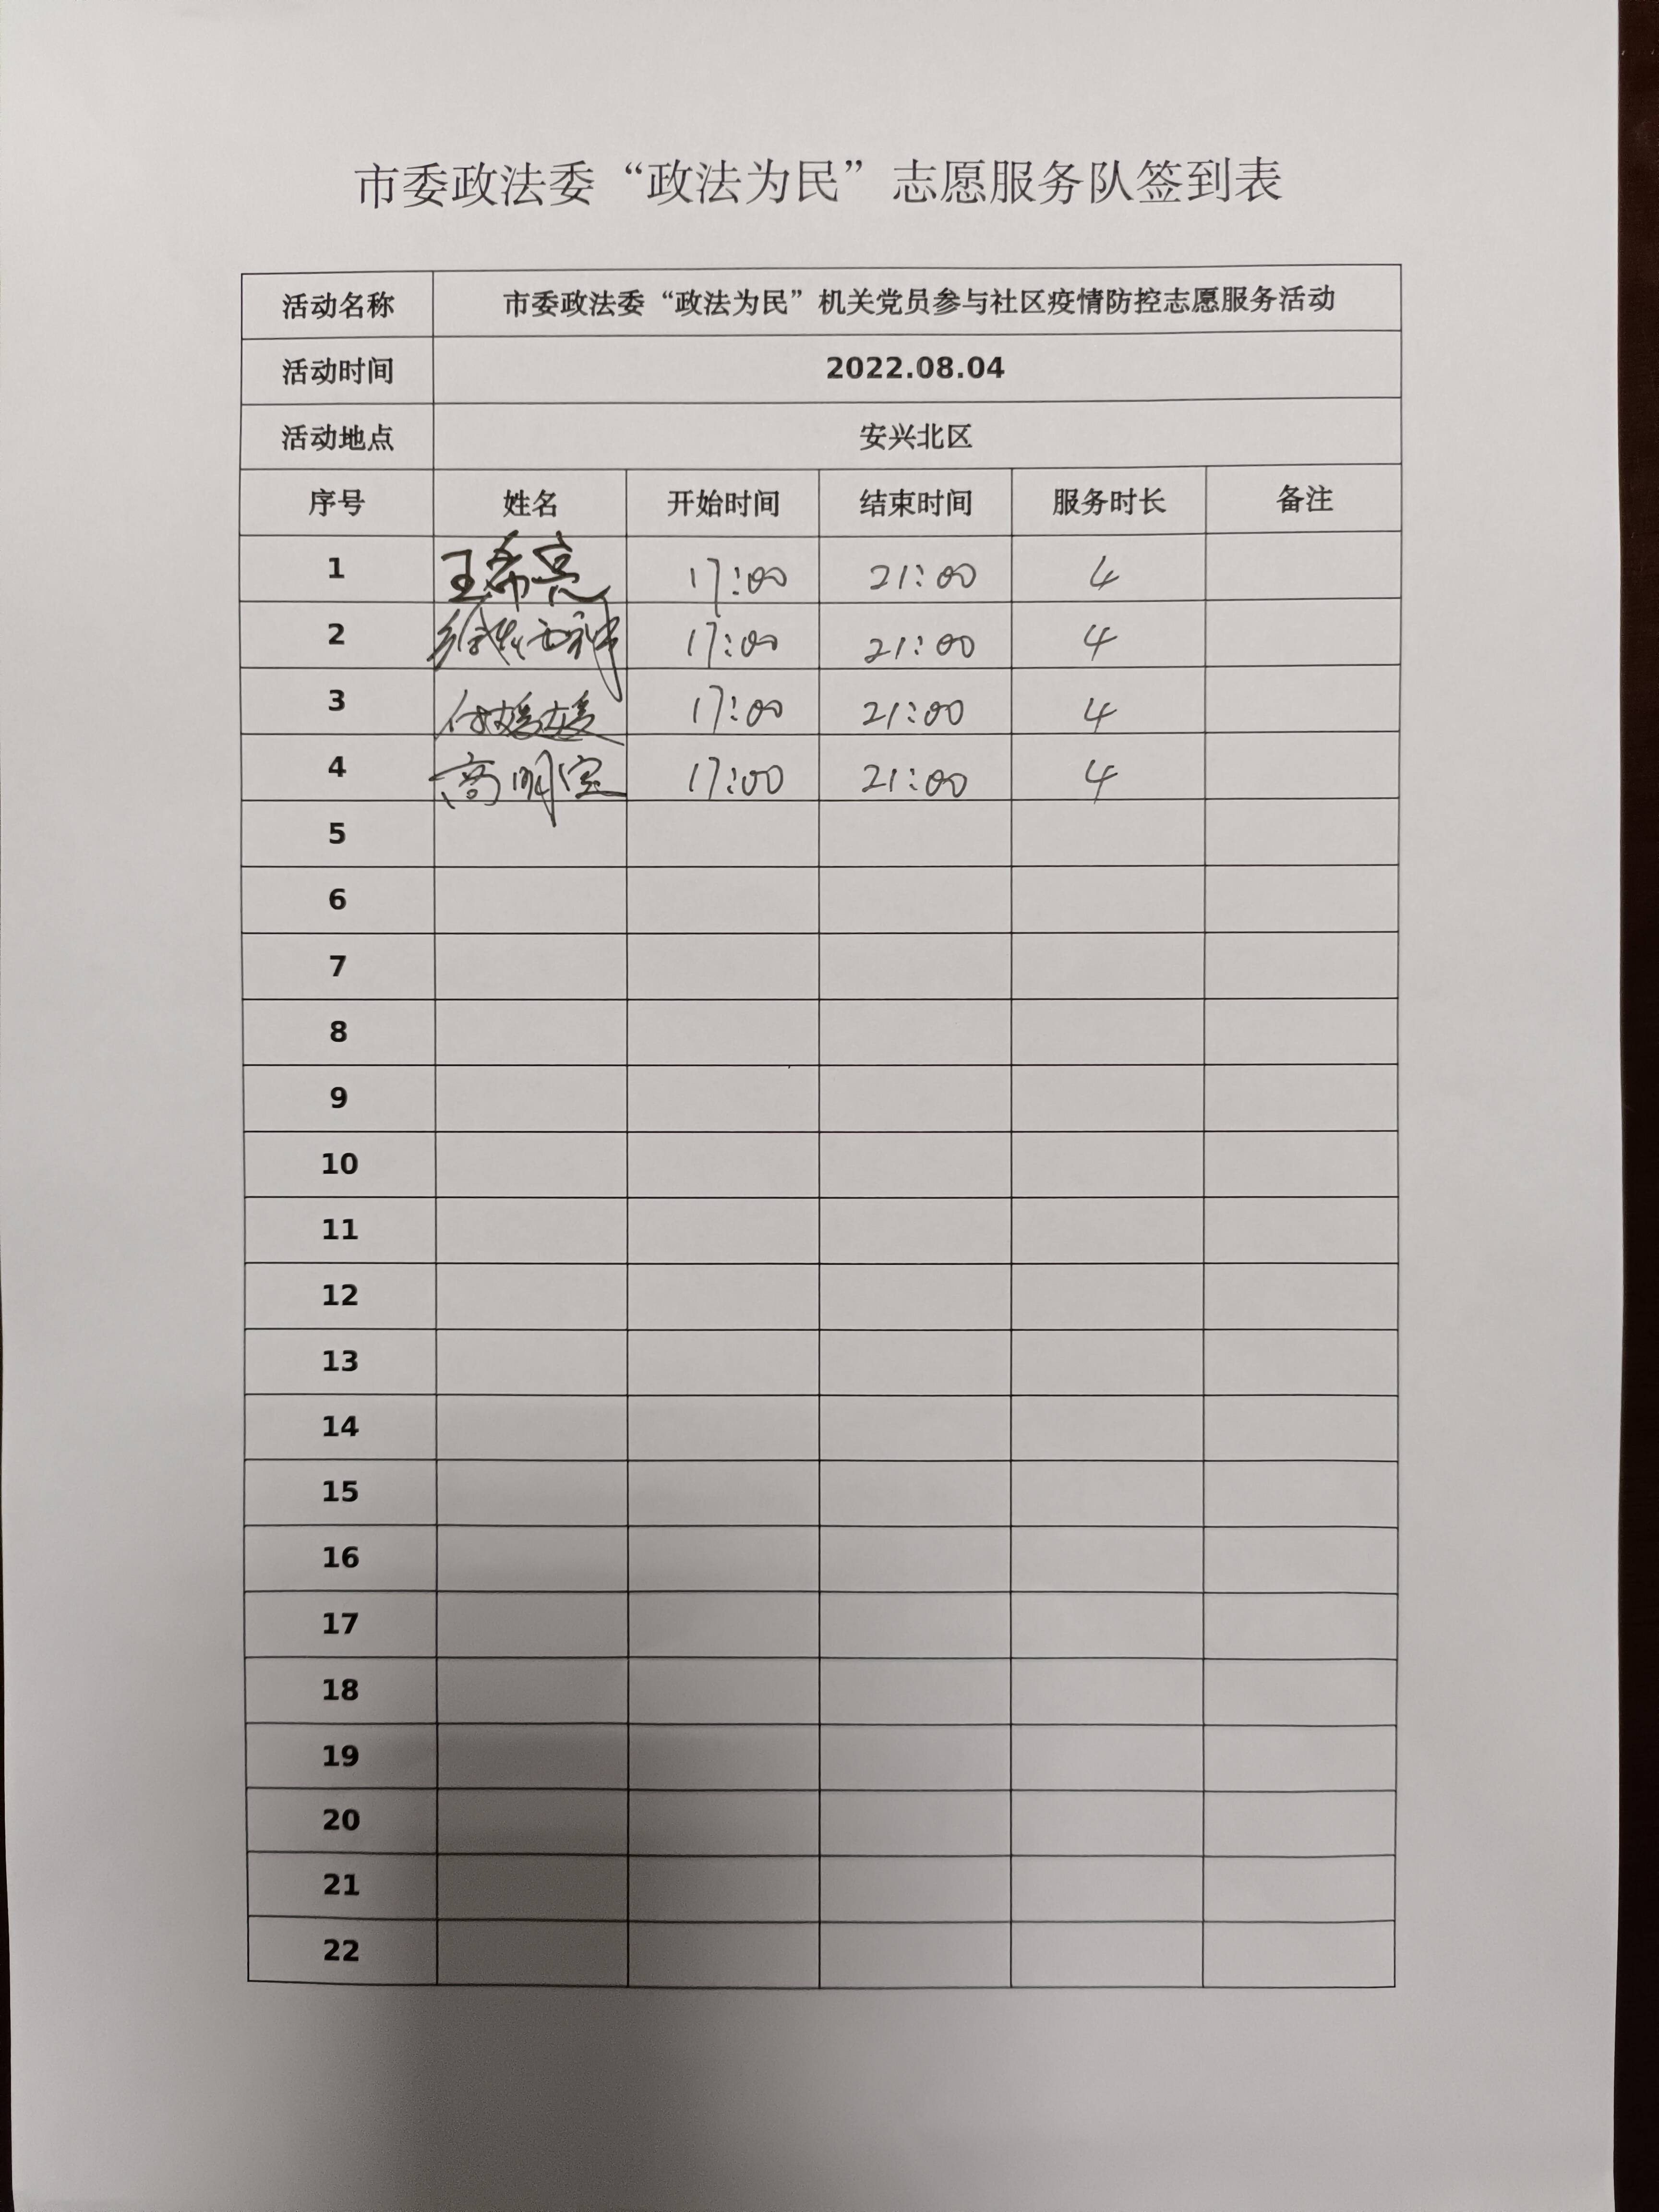 市委政法委“政法为民”志愿服务队签到表
活动名称 市委政法委“政法为民”机关党员参与社区疫情防控志愿服务活动
活动时间 2022.08.04
活动地点 安兴北区
序号 姓名 开始时间 结束时间 服务时长 备注
1 王希亮 17:00 21:00 4
2 17:00 21:00 4
3 付媛媛 17:00 21:00 4
4 高明宝 17:00 21:00 4
5
6
7
8
9
10
11
12
13
14
15
16
17
18
19
20
21
22